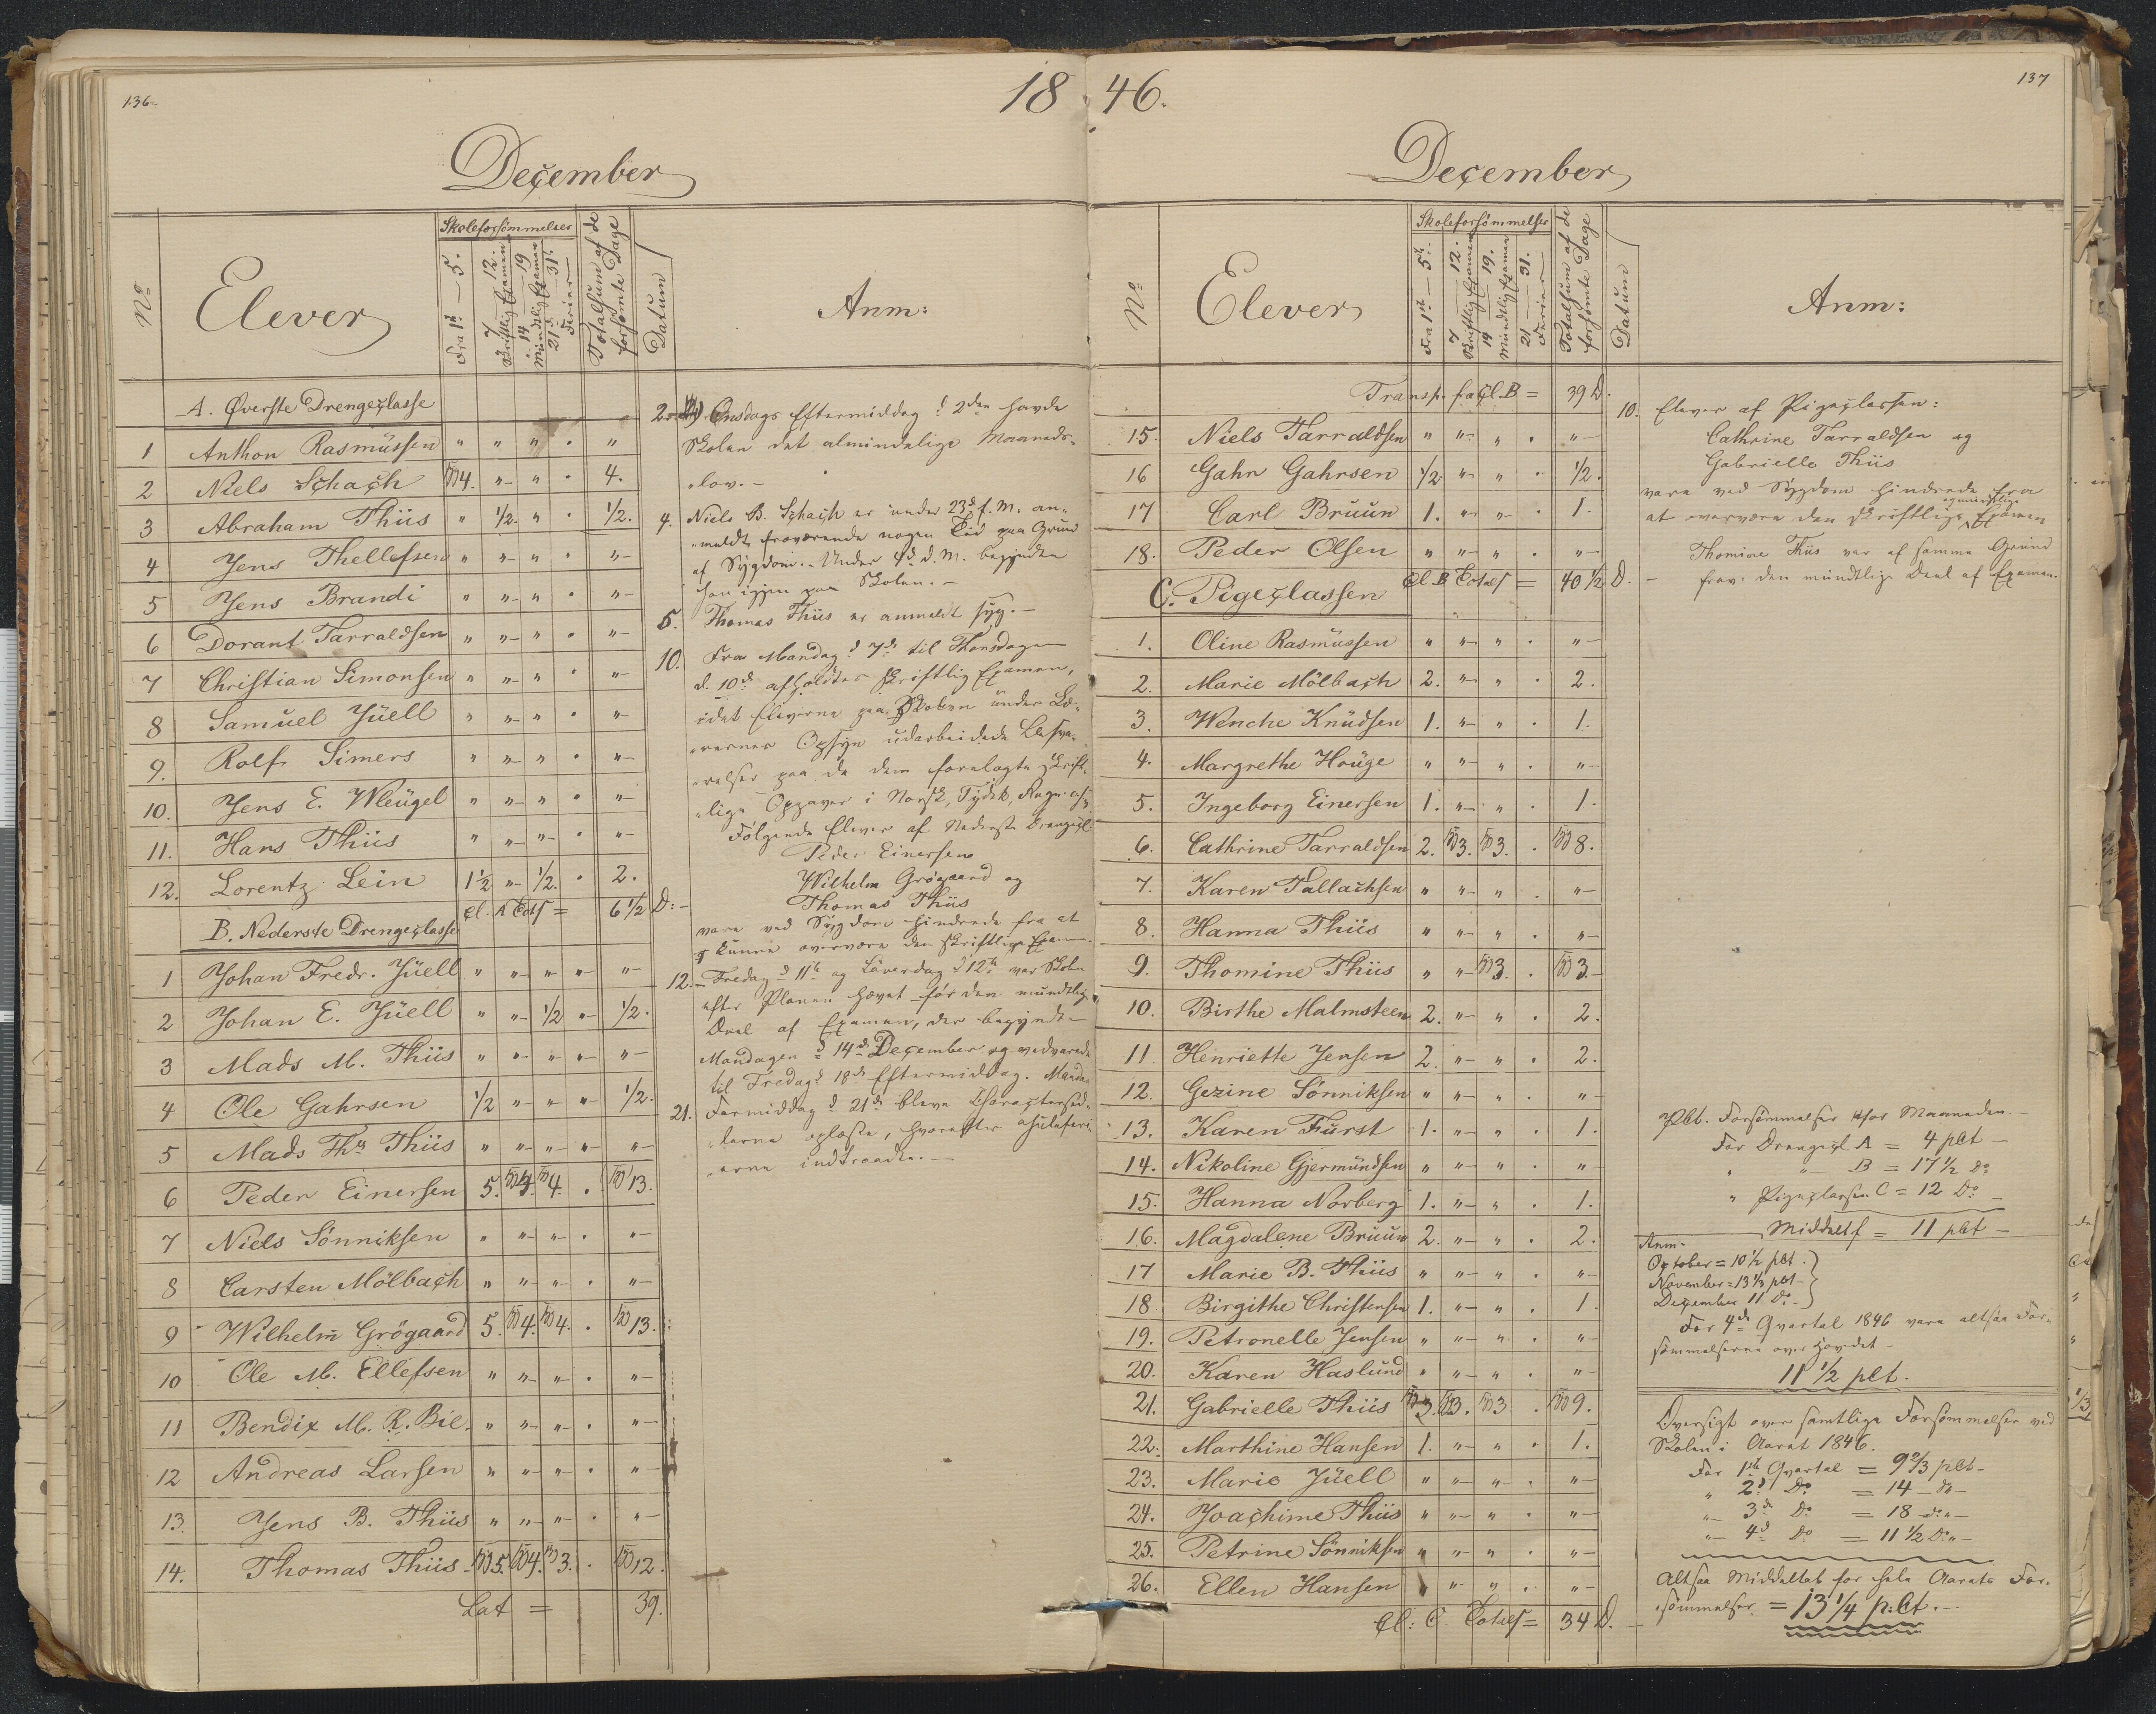 136.
18 46.
137
December
Nº
Elever
Skoleforsömmelser
Fra 1ste — 5.
7 — 12.
Skriftlig Examen
14 — 19
Mundtlig Examen
21 — 31.
Ferier
Totalsum af de
forsömte Dage
Datum
Anm:
A. Øverste Drengeclasse
1 Anthon Rasmüssen " " " . "
2 Niels Schach syg 4. "- " . 4.
3 Abraham Thiis " 1/2. " . 1/2.
4 Jens Thellefsen " "- " . "-
5 Jens Brandi " "- " . "-
6 Dorant Tarraldsen " "- " . "-
7 Christian Simonsen " "- " . "-
8 Samüel Jüell " "- " . "-
9. Rolf Simers " "- " . "-
10. Jens E. Wleügel " "- " . "-
11. Hans Thiis " "- "- . "-
12. Lorentz Lein 1 1/2 "- 1/2. . 2.
Cl. A Tots = 6 1/2 D:-
B. Nederste Drengeclasse
1 Johan Fredr. Jüell " "- "- "- "-
2 Johan E. Jüell " "- 1/2 "- 1/2.
3 Mads M. Thiis " "- "- "- "-
4 Ole Gahrsen 1/2 "- "- "- 1/2.
5 Mads Ths Thiis " "- "- "- "-
6 Peder Einersen 5. syg 4. syg 4. . syg 13.
7 Niels Sönniksen " "- "- . "-
8 Carsten Mölbach " "- "- . "-
9 Wilhelm Grögaard 5. syg 4. syg 4. . syg 13.
10 Ole M. Ellefsen " "- "- . "-
11 Bendix M. R. Bie. " "- "- . "-
12 Andreas Larsen " "- "- . "-
13. Jens B. Thiis " "- "- . "-
14. Thomas Thiis syg 5. syg 4. syg 3. . syg 12.
Lat = 39.
2. Onsdags Eftermiddag d 2den havde
Skolen det almindelige Maaneds-
"lov.-
4. Niels B. Schach er under 23d f. M. an-
"meldt fraværende nogen Tid paa Grund
af Sygdom.- Under 4d d. M. begyndte
han igjen paa Skolen.-
5. Thomas Thiis er anmeldt syg.-
10. Fra Mandag d 7de til Thorsdagen
d. 10de afholdtes skriftlig Examen,
idet Eleverne paa Skolen under Læ-
"rernes Opsyn udarbeidede Besva-
"relser paa de dem forelagte skrift-
"lige Opgaver i Norsk, Tydsk, Regn. osv
Følgende Elever af Nederste Drengecl.
Peder Einersen
Wilhelm Grögaard og
Thomas Thiis
vare ved Sygdom hindrede fra at
kunne overvære den skriftlige Exam.
12. Fredag d 11te og Löverdag d 12te var Skolen
efter Planen hævet för den mundtlige
Deel af Examen, der begyndte
Mandagen d 14de December og vedvarede
til Fredag d 18de Eftermiddag. Mandag
21. Formiddag d 21de bleve Charactersed-
"lerne oplæste, hvorefter Juleferi-
"erne indtraadte.-
December
Nº
Elever
Skoleforsömmelser
Fra 1ste — 5te.
7 — 12.
Skriftlig Examen
14 — 19.
Mündtlig Examen
21 — 31.
Ferier
Totalsum af de
forsömte Dage
Datum
Anm:
Transp. fra Cl. B = 39 D.
15. Niels Tarraldsen " "- " . "-
16 Gahr Gahrsen 1/2 "- " . 1/2.
17 Carl Bruun 1. "- " . 1.
18. Peder Olsen " "- " . "-
Cl. B Totals = 40 1/2 D.
C. Pigeclassen
1. Oline Rasmüssen " "- " . "-
2. Marie Mölbach 2. "- " . 2.
3. Wenche Knüdsen 1. "- " . 1.
4. Margrethe Houge " "- " . "-
5. Ingeborg Einersen 1. "- " . 1.
6. Cathrine Tarraldsen 2. syg 3. syg 3. . syg 8.
7. Karen Tallachsen " "- " . "-
8. Hanna Thiis " "- " . "-
9. Thomine Thiis " "- syg 3. . syg 3.-
10. Birthe Malmsteen 2. "- " . 2.
11. Henriette Jensen 2. "- " . 2.
12. Gezine Sönniksen " "- " . "-
13. Karen Fürst 1. "- " . 1.
14. Nikoline Gjermündsen " "- " . "-
15. Hanna Norberg 1. "- " . 1.
16. Magdalene Bruun 2. "- " . 2.
17 Marie B. Thiis " "- " . "-
18 Birgithe Christensen 1. "- " . 1.
19. Petronelle Jensen " "- " . "-
20. Karen Haslund " "- " . "-
21. Gabrielle Thiis syg 3. syg 3. syg 3 . syg 9.
22. Marthine Hansen 1. "- " . 1.
23. Marie Jüell " "- " . "-
24. Joachime Thiis " "- " . "-
25. Petrine Sönniksen " "- " . "-
26. Ellen Hansen " "- " . "-
Cl: C. Totals = 34 D.
10. Elever af Pigeclassen:
Cathrine Tarraldsen og
Gabrielle Thiis
vare ved Sygdom hindrede fra
og mundtlige
at overvære den skriftlige Examen
Thomine Thiis var af samme Grund
frav. den mündtlige Deel af Examen.
Pct. Forsömmelser for Maaneden.-
For Drengecl A = 4 pCt-
" "- B = 17 1/2 Do
" Pigeclassen C = 12 Do
Middelt. = 11 pCt-
Anm.
October = 10 1/2 pCt.
November = 13 1/3 pCt-
December 11 Do-
For 4de Qvartal 1846 vare altsaa For-
sömmelserne over Hovedet-
11 1/2 pCt.
Oversigt over samtlige Forsömmelser ved
Skolen i Aaret 1846.
For 1ste Qvartal = 9 2/3 pCt-
" 2d Do = 14 - Do-
"- 3de Do = 18 - Do"-
"- 4d Do = 11 1/2 Do"-
Altsaa Middeltal for hele Aarets For-
"sömmelser = 13 1/4 p:Ct.-